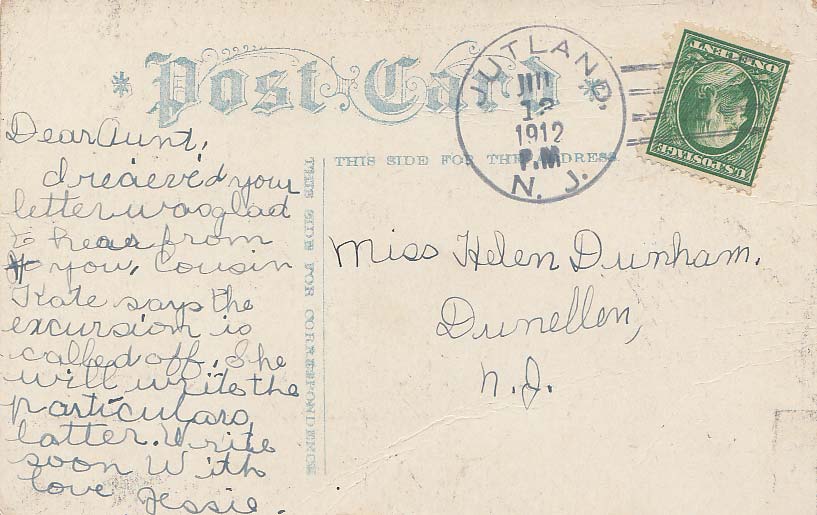 Post Card
JUTLAND,
1912
P.M
N. J.
ONE CENT
U.S. POSTAGE
THIS SIDE FOR THE ADDRESS
THIS SIDE FOR CORRESPONDENCE
Dear Aunt,
I reciev'd your
letter was glad
to hear from
you, Cousin
Kate says the
excursion is
called off. She
will write the
particulars
latter. Write
soon With
love Jessie.
Miss Helen Dunham.
Dunellen,
N.J.